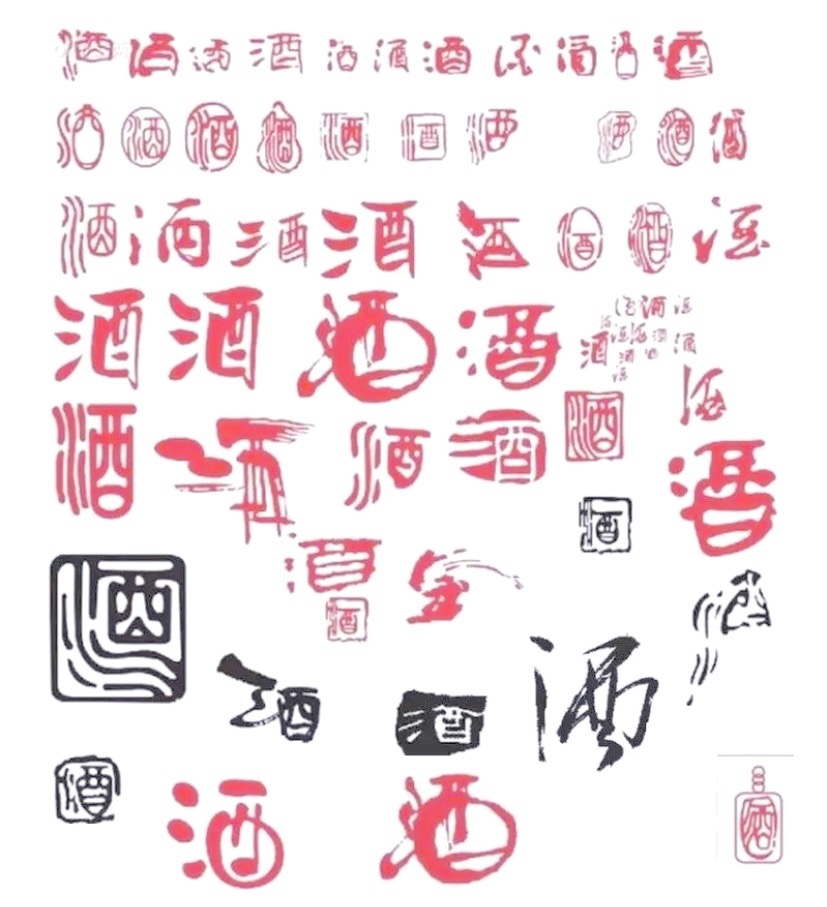 酒 酒 酒 酒 酒 酒 酒 酒 酒 酒 酒
酒 酒 酒 酒 酒 酒 酒 酒 酒 酒
酒 酒 酒 酒 酒 酒 酒 酒
酒 酒 酒 酒 酒 酒
酒 酒 酒 酒 酒 酒
酒 酒
酒 酒
酒 酒 酒 酒 酒
酒 酒 酒 酒